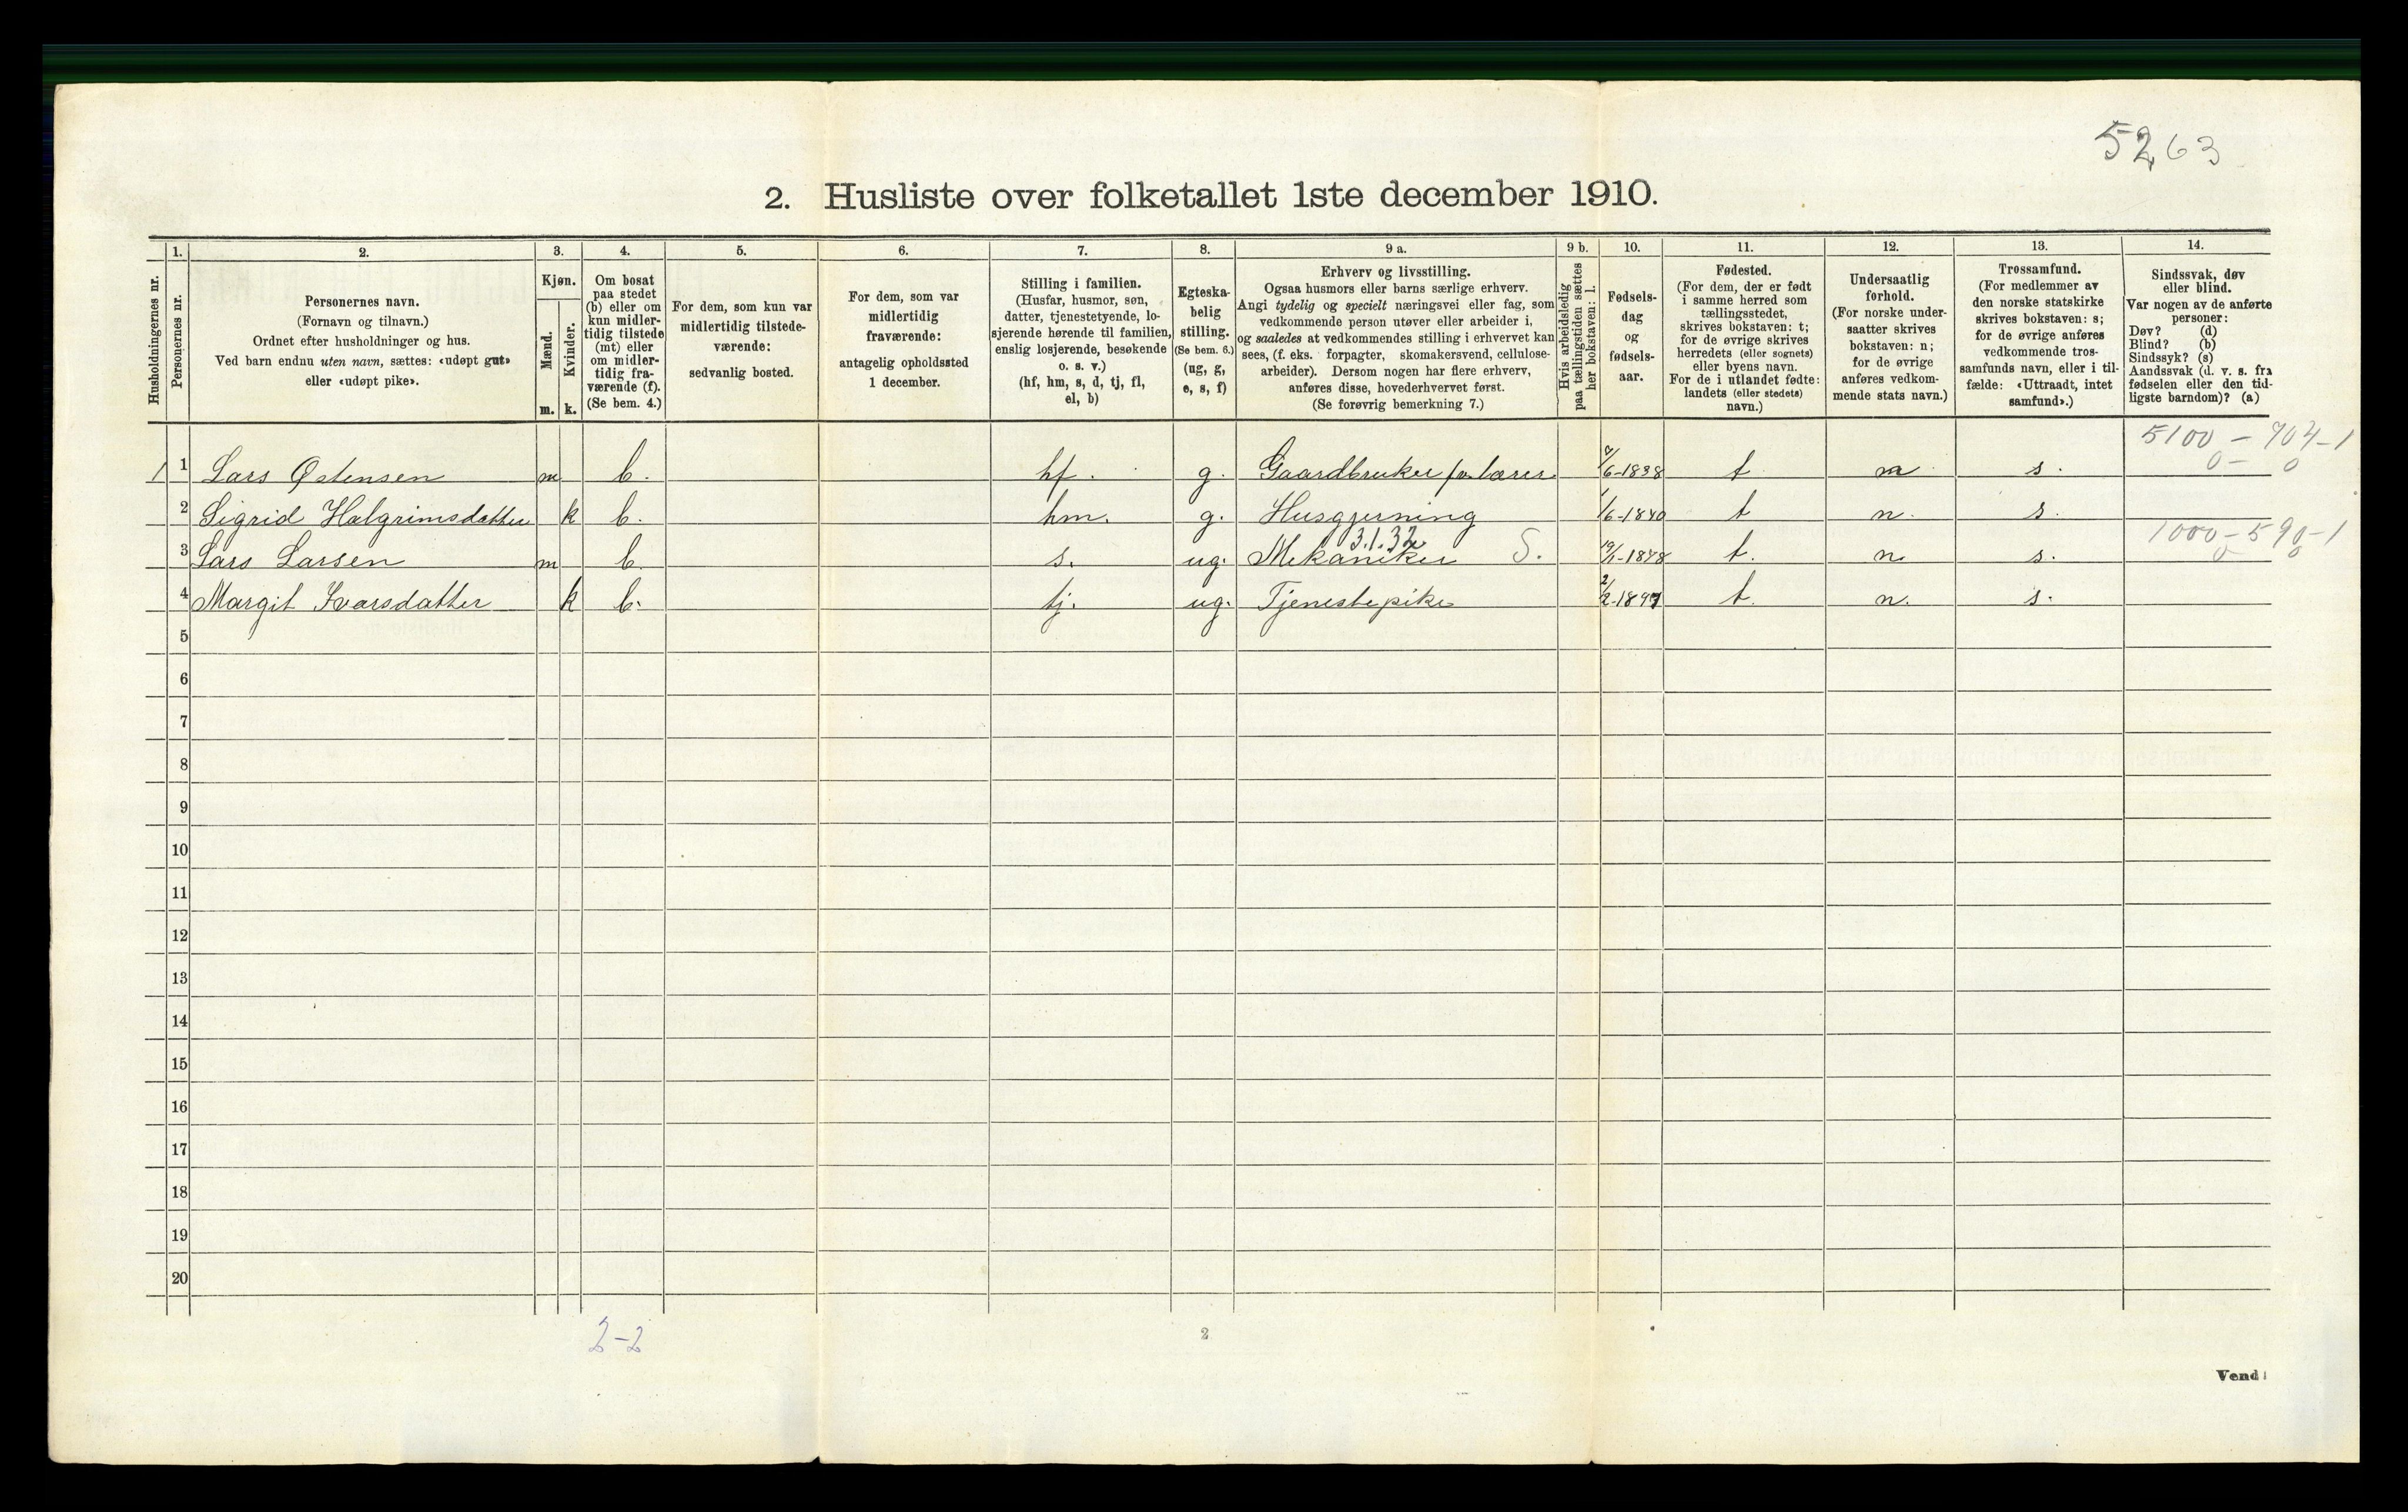 5263
2. Husliste over folketallet 1ste december 1910.
Husholdningernes nr.
1.
Personernes nr.
2.
Personernes navn.
(Fornavn og tilnavn.)
Ordnet efter husholdninger og hus.
Ved barn endnu uten navn, sættes: «udøpt gut»
eller «udøpt pike».
3.
Kjøn.
Mænd.
Kvinder.
m. k.
4.
Om bosat
paa stedet
(b) eller om
kun midler-
tidig tilstede
(mt) eller
om midler-
tidig fra-
værende (f).
(Se bem. 4.)
5.
For dem, som kun var
midlertidig tilstede-
værende:
sedvanlig bosted.
6.
For dem, som var
midlertidig
fraværende:
antagelig opholdssted
1 december.
7.
Stilling i familien.
(Husfar, husmor, søn,
datter, tjenestetyende, lo-
sjerende hørende til familien,
enslig losjerende, besøkende
o. s. v.)
(hf, hm, s, d, tj, fl,
el, b)
8.
Egteska-
belig
stilling.
(Se bem. 6.)
(ug, g,
e, s, f)
9 a.
Erhverv og livsstilling.
Ogsaa husmors eller barns særlige erhverv.
Angi tydelig og specielt næringsvei eller fag, som
vedkommende person utøver eller arbeider i,
og saaledes at vedkommendes stilling i erhvervet kan
sees, (f. eks. forpagter, skomakersvend, cellulose-
arbeider). Dersom nogen har flere erhverv,
anføres disse, hovederhvervet først.
(Se forøvrig bemerkning 7.)
9 b.
Hvis arbeidsledig
paa tællingstiden sættes
her bokstaven: l.
10.
Fødsels-
dag
og
fødsels-
aar.
11.
Fødested.
(For dem, der er født
i samme herred som
tællingsstedet,
skrives bokstaven: t;
for de øvrige skrives
herredets (eller sognets)
eller byens navn.
For de i utlandet fødte:
landets (eller stedets)
navn.)
12.
Undersaatlig
forhold.
(For norske under-
saatter skrives
bokstaven: n;
for de øvrige
anføres vedkom-
mende stats navn.)
13.
Trossamfund.
(For medlemmer av
den norske statskirke
skrives bokstaven: s;
for de øvrige anføres
vedkommende tros-
samfunds navn, eller i til-
fælde: «Uttraadt, intet
samfund».)
14.
Sindssvak, døv
eller blind.
Var nogen av de anførte
personer:
Døv? (d)
Blind? (b)
Sindssyk? (s)
Aandssvak (d. v. s. fra
fødselen eller den tid-
ligste barndom)? (a)
5100 – 704-1
0 – 0
1 1 Lars Østensen m b. hf. g. Gaardbruker fv. lærer 6-1838 t n s.
2 Sigrid Halgrimsdatter k b. hm. g. Husgjerning 1/6-1840 t n. s.
3.1.32
1000-590-1
0 0
3 Lars Larsen m b. s. ug. Mekaniker S. t. n. s.
4 Margit Ivarsdatter k b. tj. ug. Tjenestepike 2/2-1897 t. n. s.
5
6
7
8
9
10
11
12
13
14
15
16
17
18
19
20
2-2
2
Vend!